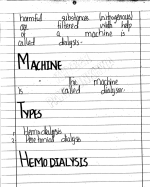 harmful substances (nitrogenous)
are filtered with help
of a machine is
called dialysis.
MACHINE
The machine
is called dialyser.
TYPES
Hemodialysis
Peritoneal dialysis
HEMODIALYSIS